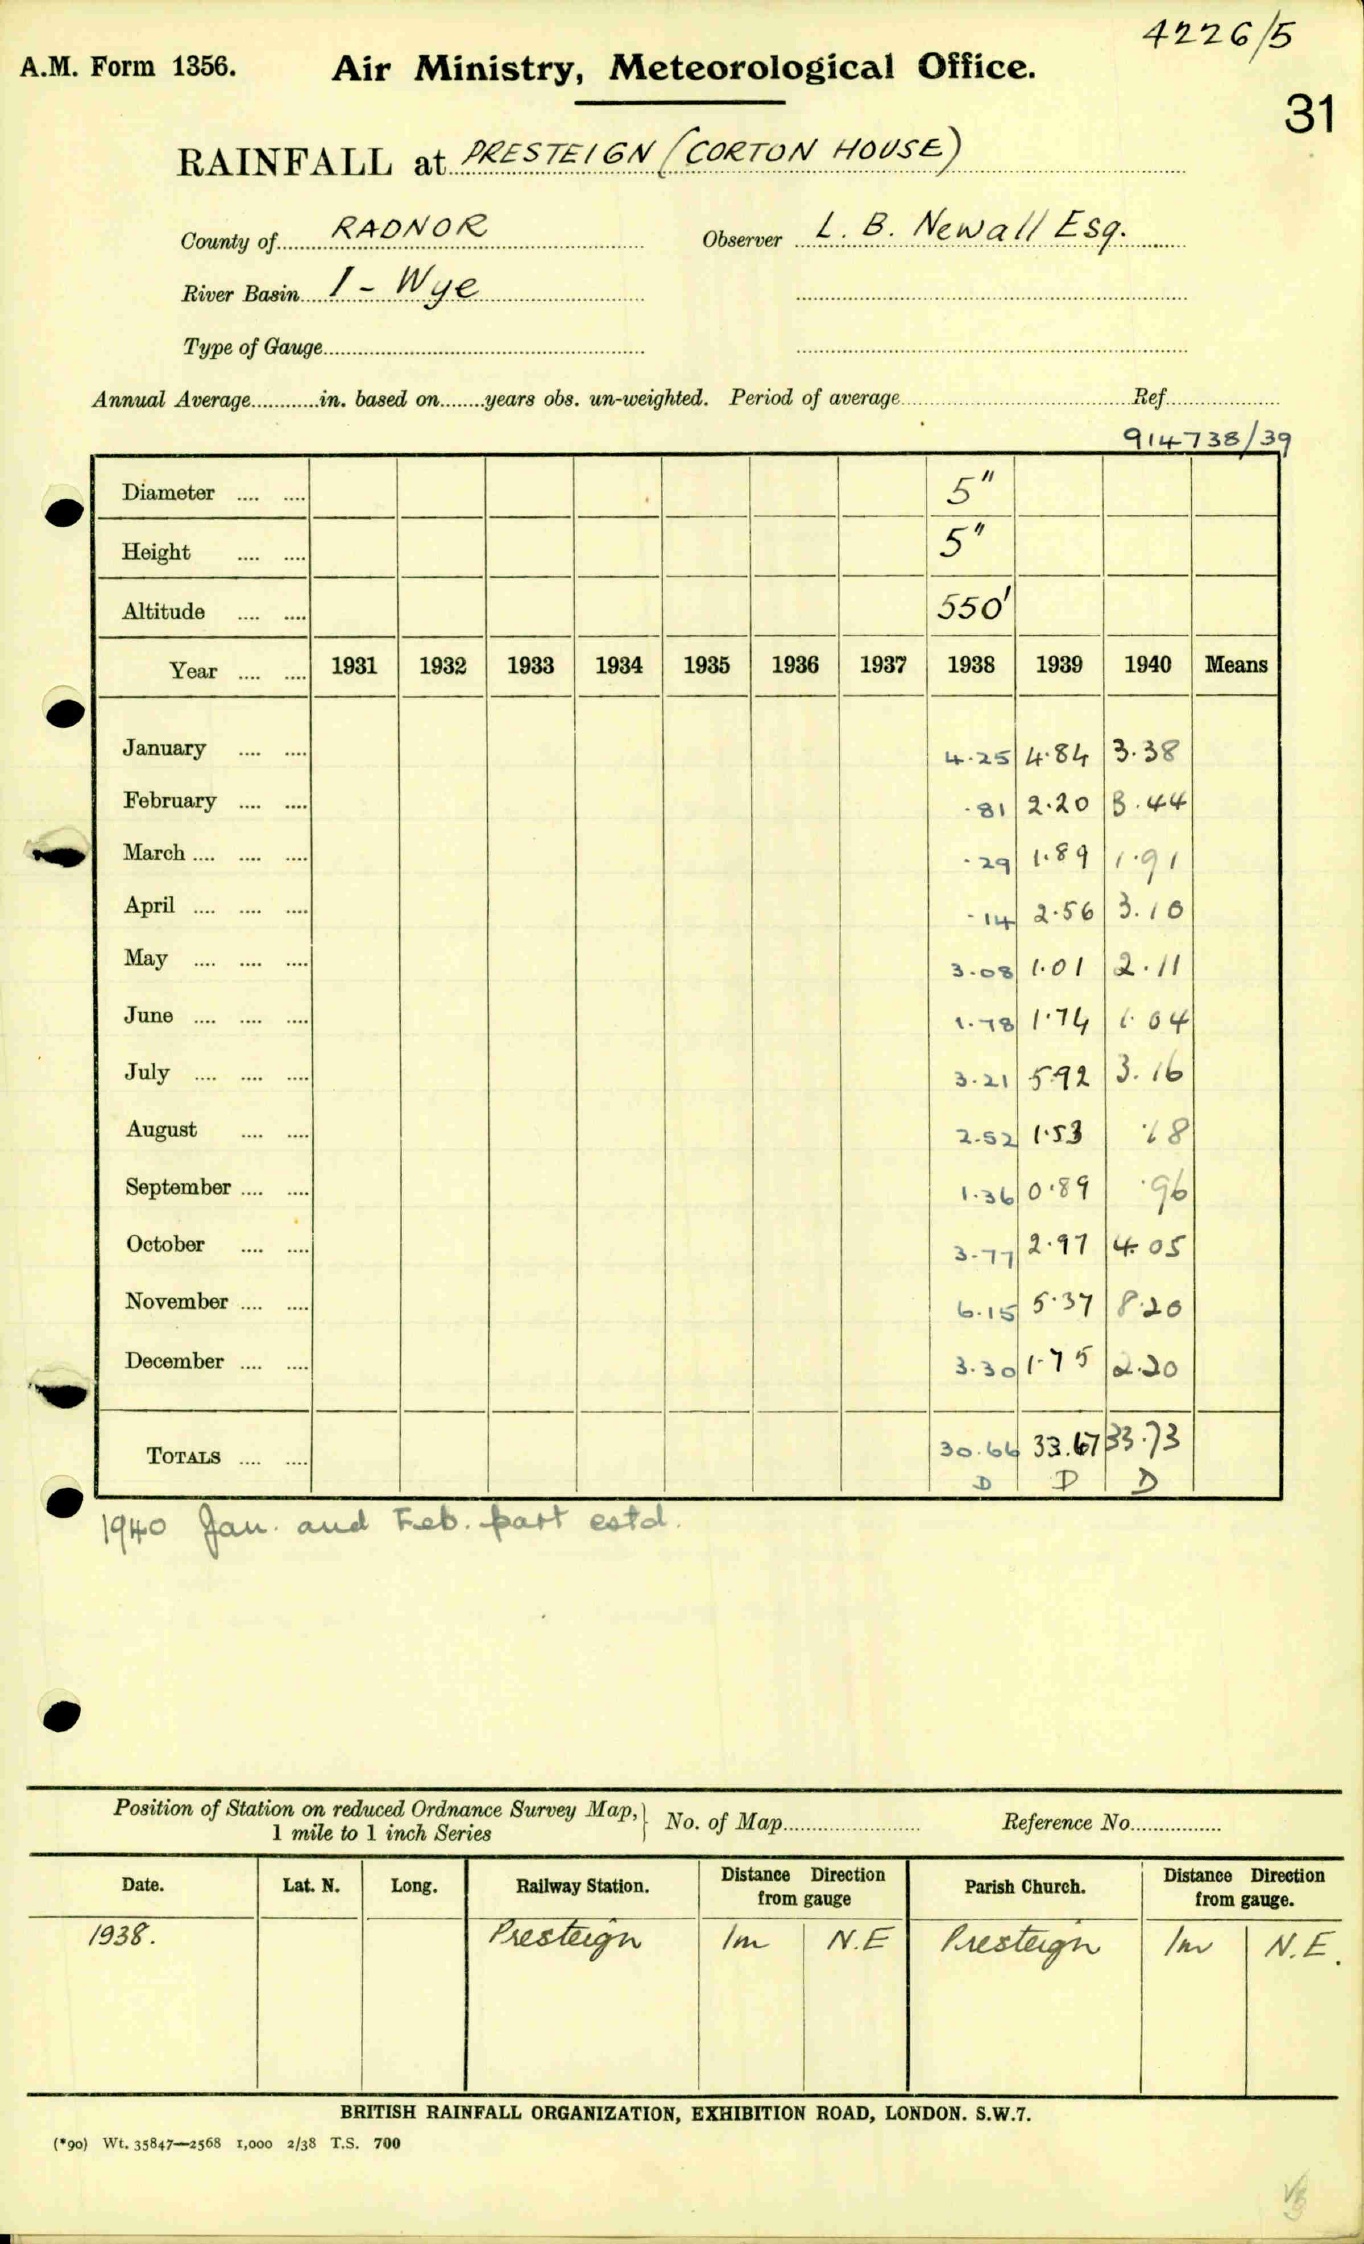 4226/5
A.M. Form 1356. Air Ministry, Meteorological Office.
31
RAINFALL at PRESTEIGN (CORTON HOUSE)
County of RADNOR Observer L. B. Newall Esq.
River Basin 1 - Wye
Type of Gauge
Annual Average............in. based on........years obs. un-weighted. Period of average............Ref............
914738/39
Diameter .... .... 5"
Height .... .... 5"
Altitude .... .... 550'
Year .... .... 1931 1932 1933 1934 1935 1936 1937 1938 1939 1940 Means
January .... .... 4.25 4.84 3.38
February .... .... .81 2.20 3.44
March .... .... .... .29 1.89 1.91
April .... .... .... .14 2.56 3.10
May .... .... .... 3.08 1.01 2.11
June .... .... .... 1.78 1.74 1.04
July .... .... .... 3.21 5.92 3.16
August .... .... 2.52 1.53 .18
September .... .... 1.36 0.89 .96
October .... .... 3.77 2.97 4.05
November .... .... 6.15 5.37 8.20
December .... .... 3.30 1.75 2.20
TOTALS .... .... 30.66 33.67 33.73
D D D
1940 Jan. and Feb. part estd.
Position of Station on reduced Ordnance Survey Map, 1 mile to 1 inch Series } No. of Map............ Reference No............
Date. Lat. N. Long. Railway Station. Distance Direction from gauge Parish Church. Distance Direction from gauge.
1938. Presteign 1m N.E Presteign 1m N.E.
BRITISH RAINFALL ORGANIZATION, EXHIBITION ROAD, LONDON. S.W.7.
(*90) Wt. 35847—2568 1,000 2/38 T.S. 700